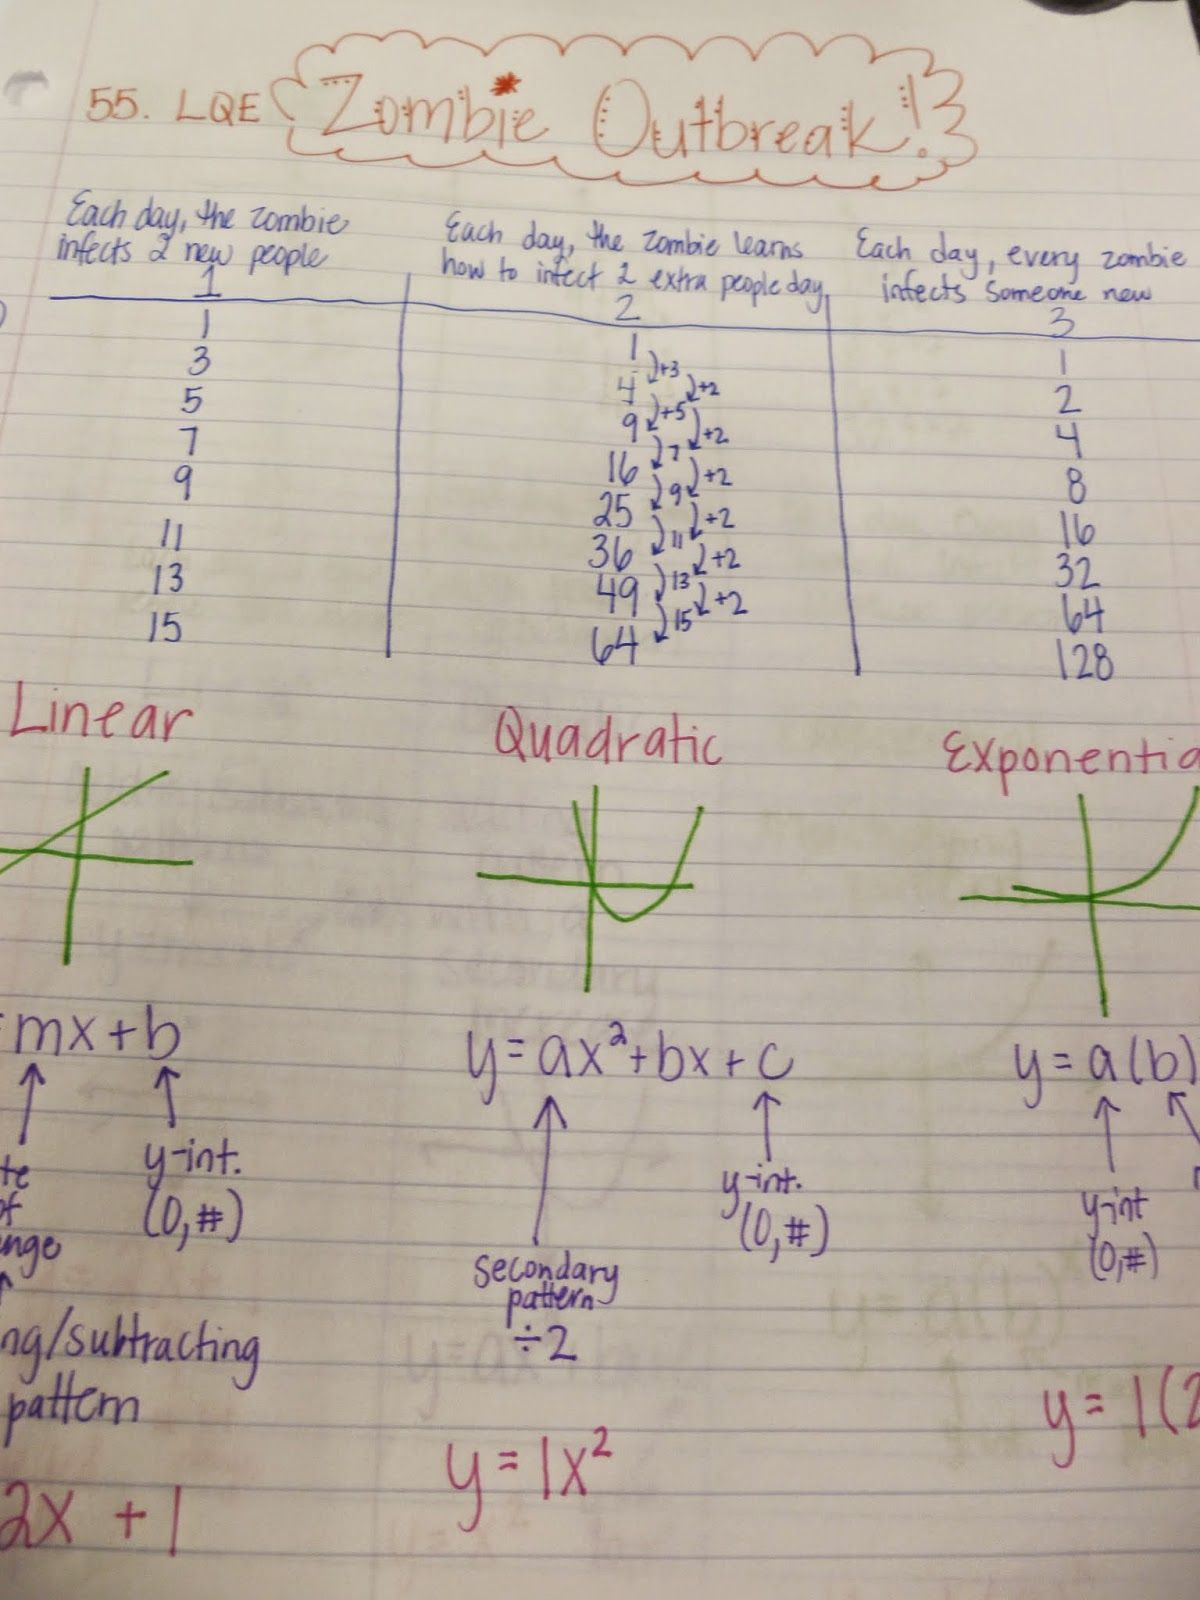 55. LQE Zombie Outbreak!
Each day, the zombie
infects 2 new people
1
1
3
5
7
9
11
13
15
Each day, the zombie learns
how to infect 2 extra people day
2
1
4
9
16
25
36
49
64
+3
+5
7
9
11
13
15
+2
+2
+2
+2
+2
+2
Each day, every zombie
infects someone new
3
1
2
4
8
16
32
64
128
Linear
Quadratic
Exponentia
=mx+b
te
of
nge
y-int.
(0,#)
ng/subtracting
pattern
2x + 1
y=ax²+bx+c
secondary
pattern
÷2
y-int.
(0,#)
y=1x²
y=a(b)
y-int
(0,#)
y=1(2